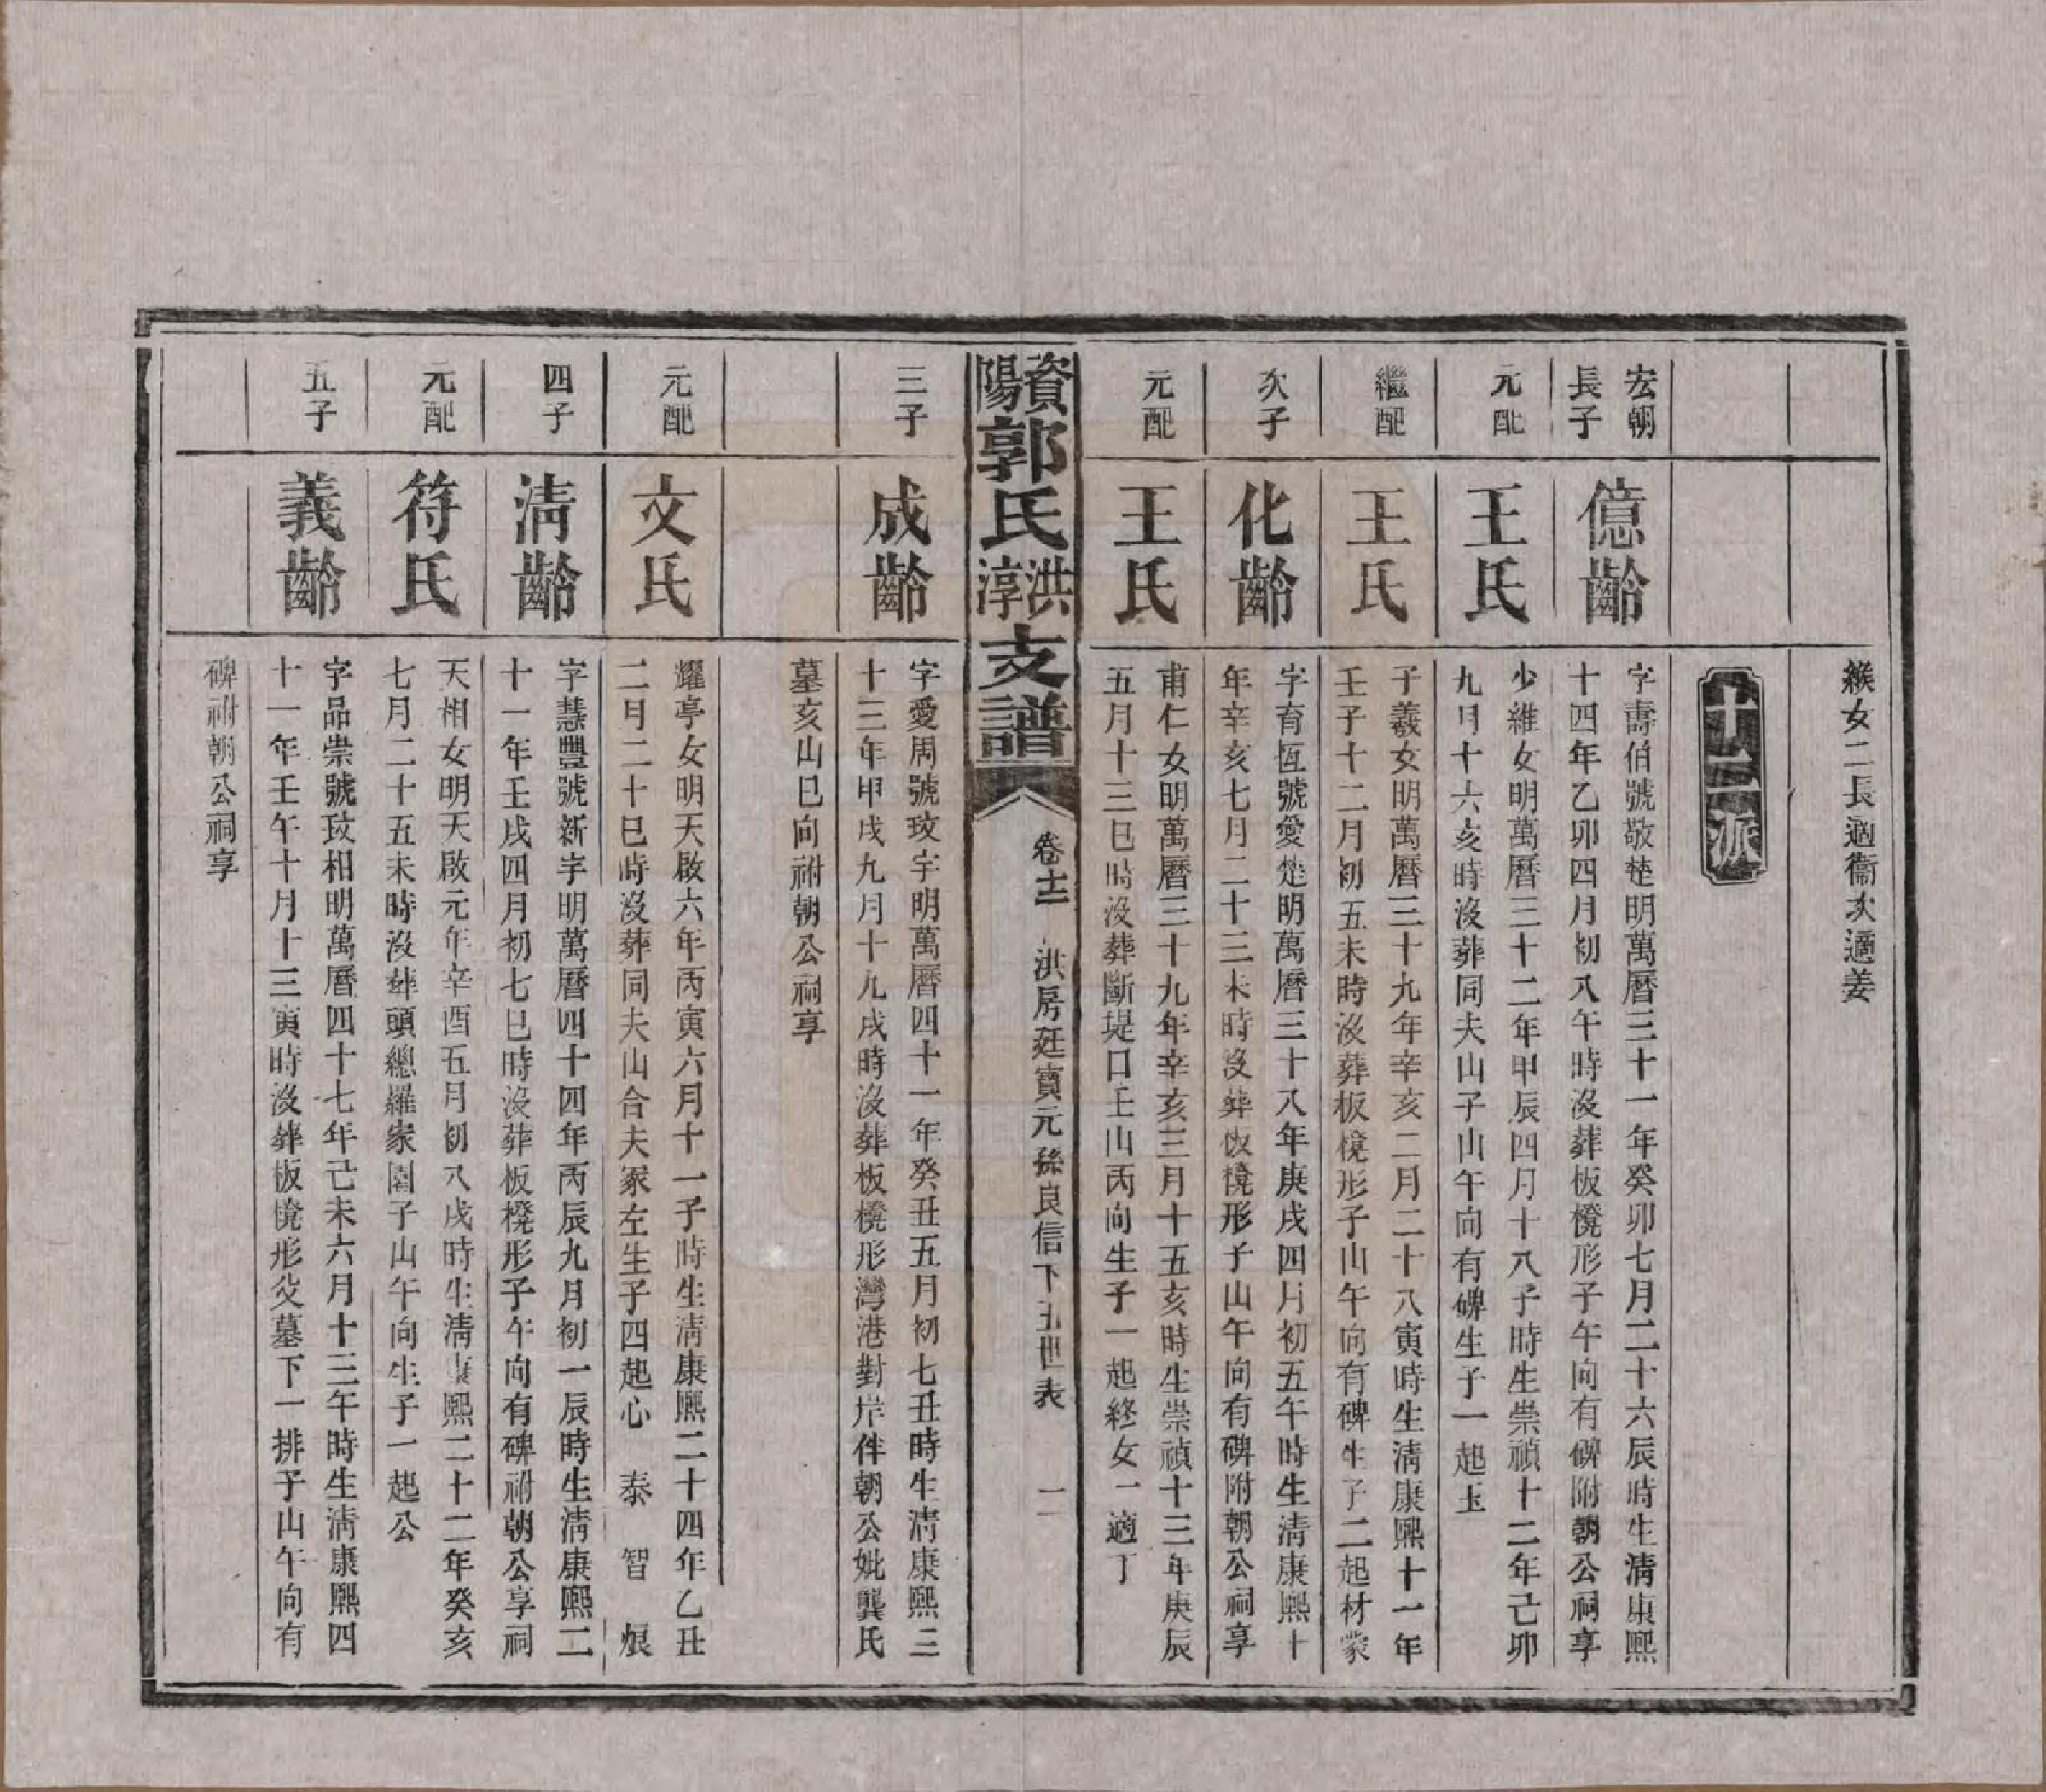 緱女二長適衞次適姜
十二派
宏朝
長子
億齡
字壽伯號敬楚明萬曆三十一年癸卯七月二十六辰時生淸康熙
十四年乙卯四月初八午時沒葬板櫈形子午向有碑附朝公祠享
元配
王氏
少維女明萬曆三十二年甲辰四月十八子時生崇禎十二年己卯
九月十六亥時沒葬同夫山子山午向有碑生子一起玉
繼配
王氏
子羲女明萬曆三十九年辛亥二月二十八寅時生淸康熙十一年
壬子十二月初五未時沒葬板櫈形子山午向有碑生子二起材蒙
次子
化齡
字育恆號愛楚明萬曆三十八年庚戌四月初五午時生淸康熙十
年辛亥七月二十三未時沒葬板櫈形子山午向有碑附朝公祠享
元配
王氏
甫仁女明萬曆三十九年辛亥三月十五亥時生崇禎十三年庚辰
五月十三巳時沒葬斷堤口壬山丙向生子一起終女一適丁
資陽郭氏洪淳支譜
卷十二
洪房廷寶元孫良信下五世表
二
三子
成齡
字愛周號玟宇明萬曆四十一年癸丑五月初七丑時生淸康熙三
十三年甲戌九月十九戌時沒葬板櫈形灣港對岸伴朝公妣龔氏
墓亥山巳向祔朝公祠享
元配
文氏
耀亭女明天啟六年丙寅六月十一子時生淸康熙二十四年乙丑
二月二十巳時沒葬同夫山合夫冢左生子四起心 泰 智 烺
四子
淸齡
字慧豐號新宇明萬曆四十四年丙辰九月初一辰時生淸康熙二
十一年壬戌四月初七巳時沒葬板櫈形子午向有碑祔朝公享祠
元配
符氏
天相女明天啟元年辛酉五月初八戌時生淸康熙二十二年癸亥
七月二十五未時沒葬頭總羅家園子山午向生子一起公
五子
義齡
字品崇號玟相明萬曆四十七年己未六月十三午時生淸康熙四
十一年壬午十月十三寅時沒葬板櫈形父墓下一排子山午向有
碑祔朝公祠享